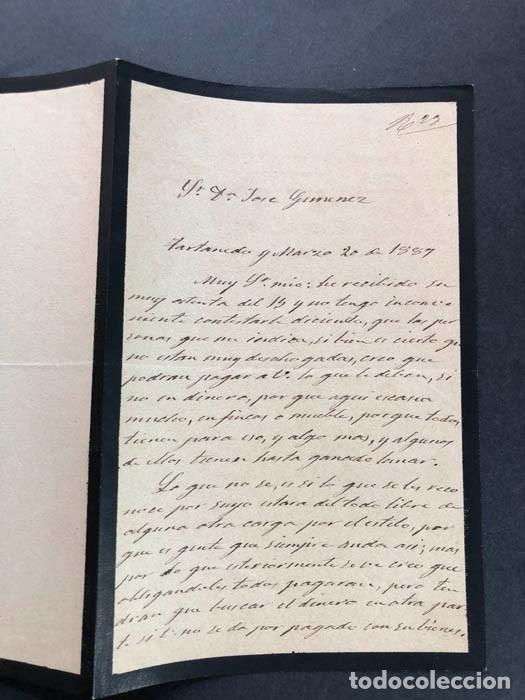 R 23
Sr. Dn. Jose Gimenez
Tartanedo y Marzo 20 de 1887
Muy Sr. mio: he recibido su
muy atenta del 15 y no tengo inconve
niente contestarle diciendo, que las per
sonas que me indica, si bien es cierto que
no estan muy desahogadas, creo que
podran pagar a V. lo que le deben, si
no en dinero, por que aqui escasea
mucho, en fincas o muebles, porque todos
tienen para eso, y algo mas, y algunos
de ellos tienen hasta ganado lanar.
Lo que no se, es si lo que se les reco
noce por suyo estara del todo libre de
alguna otra carga por el estilo, por
que es gente que siempre anda asi; mas
por lo que esteriormente se ve creo que
obligandoles todos pagaran, pero ten
dran que buscar el dinero en otra par
te si V. no se da por pagado con sus bienes.
todocoleccion